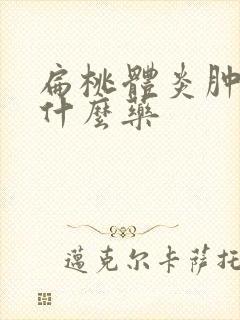 扁桃體炎肿
什麼藥
邁克尔卡萨托